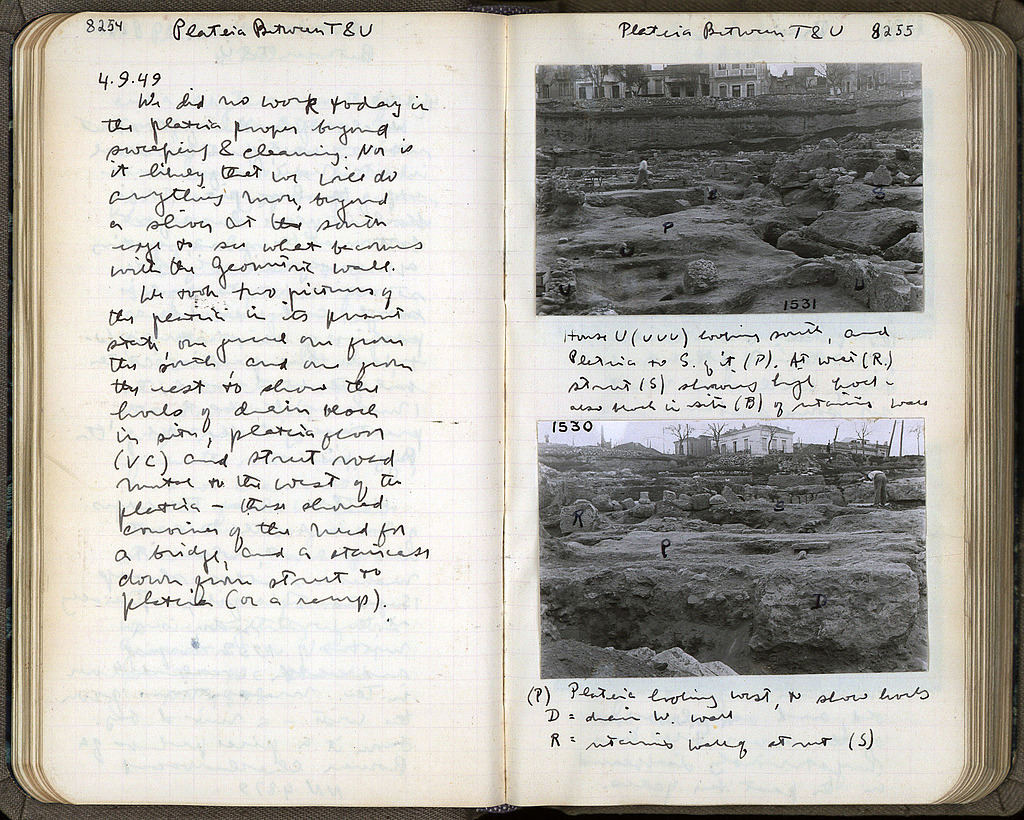 8254 Plateia Between T & U
4.9.49
We did no work today in
the plateia proper beyond
sweeping & cleaning. Nor is
it likely that we will do
anything more, beyond
a sliver at the south
edge to see what becomes
with the Geometric wall.
We took two pictures of
the plateia in its present
state, one general one from
the north, and one from
the east to show the
levels of drain
in situ, plateia floor
(VC) and street road
metal to the west of the
plateia – these showed
of the need for
a bridge, and a staircase
down from street to
plateia (or a ramp).
Plateia Between T & U 8255
P
S
U
D
1531
House U (UUU) looking south, and
Plateia to S. of it (P). At west (R.)
street (S) showing high level –
also block in situ (B) of retaining wall
1530
R
S
P
D
(P) Plateia looking west, to show levels
D = drain W. wall
R = retaining wall of street (S)